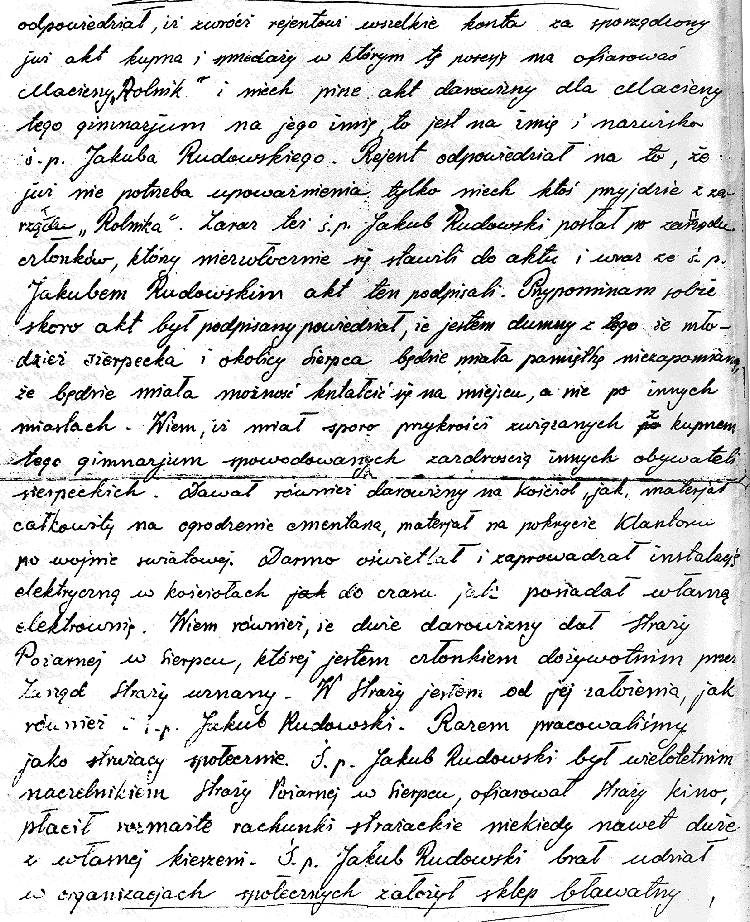 odpowiedział, iż zwróci rejentowi wszelkie konta za sporządzony
już akt kupna i sprzedaży w którym tę posesję ma ofiarować
Macierzy „Rolnik” i niech pisze akt darowizny dla Macierzy
tego gimnazjum na jego imię, to jest na imię i nazwisko
ś.p. Jakuba Rudowskiego. Rejent odpowiedział na to, że
już nie potrzeba upoważnienia tylko niech ktoś przyjdzie z za-
rządu „Rolnika”. Zaraz też ś.p. Jakub Rudowski posłał po zarządu
członków, który niezwłocznie się stawili do aktu i wraz ze ś.p.
Jakubem Rudowskim akt ten podpisali. Przypominam sobie
skoro akt był podpisany powiedział, że jestem dumny z tego że mło-
dzież sierpecka i okolicy Sierpca będzie miała pamiątkę niezapomnianą,
że będzie miała możność kształcić się na miejscu, a nie po innych
miastach. Wiem, iż miał sporo przykrości związanych z kupnem
tego gimnazjum spowodowanych zazdrością innych obywateli
sierpeckich. Dawał również darowizny na kościół, jak, materjał
całkowity na ogrodzenie cmentarza, materjał na pokrycie Klasztoru
po wojnie światowej. Darmo oświetlał i zaprowadzał instalację
elektryczną w kościołach jak do czasu jak posiadał własną
elektrownię. Wiem również, że duże darowizny dał Straży
Pożarnej w Sierpcu, której jestem członkiem dożywotnim przez
Zarząd Straży uznany. W Straży jestem od jej założenia, jak
również i ś.p. Jakub Rudowski. Razem pracowaliśmy
jako strażacy społecznie. Ś.p. Jakub Rudowski był wieloletnim
naczelnikiem Straży Pożarnej w Sierpcu, ofiarował Straży kino,
płacił rozmaite rachunki strażackie niekiedy nawet duże
z własnej kieszeni. Ś.p. Jakub Rudowski brał udział
w organizacjach społecznych założył sklep bławatny,